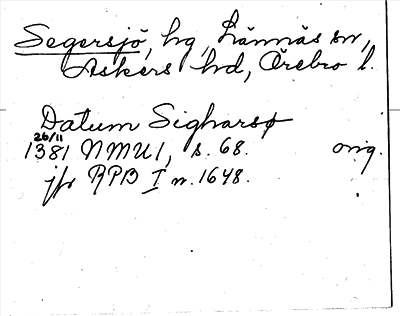 Segersjö, hg, Lännäs sn,
Askers hd, Örebro l.
Datum Sigharsø
26/11
1381 NMU1, s. 68. orig.
jfr RPB I n. 1648.